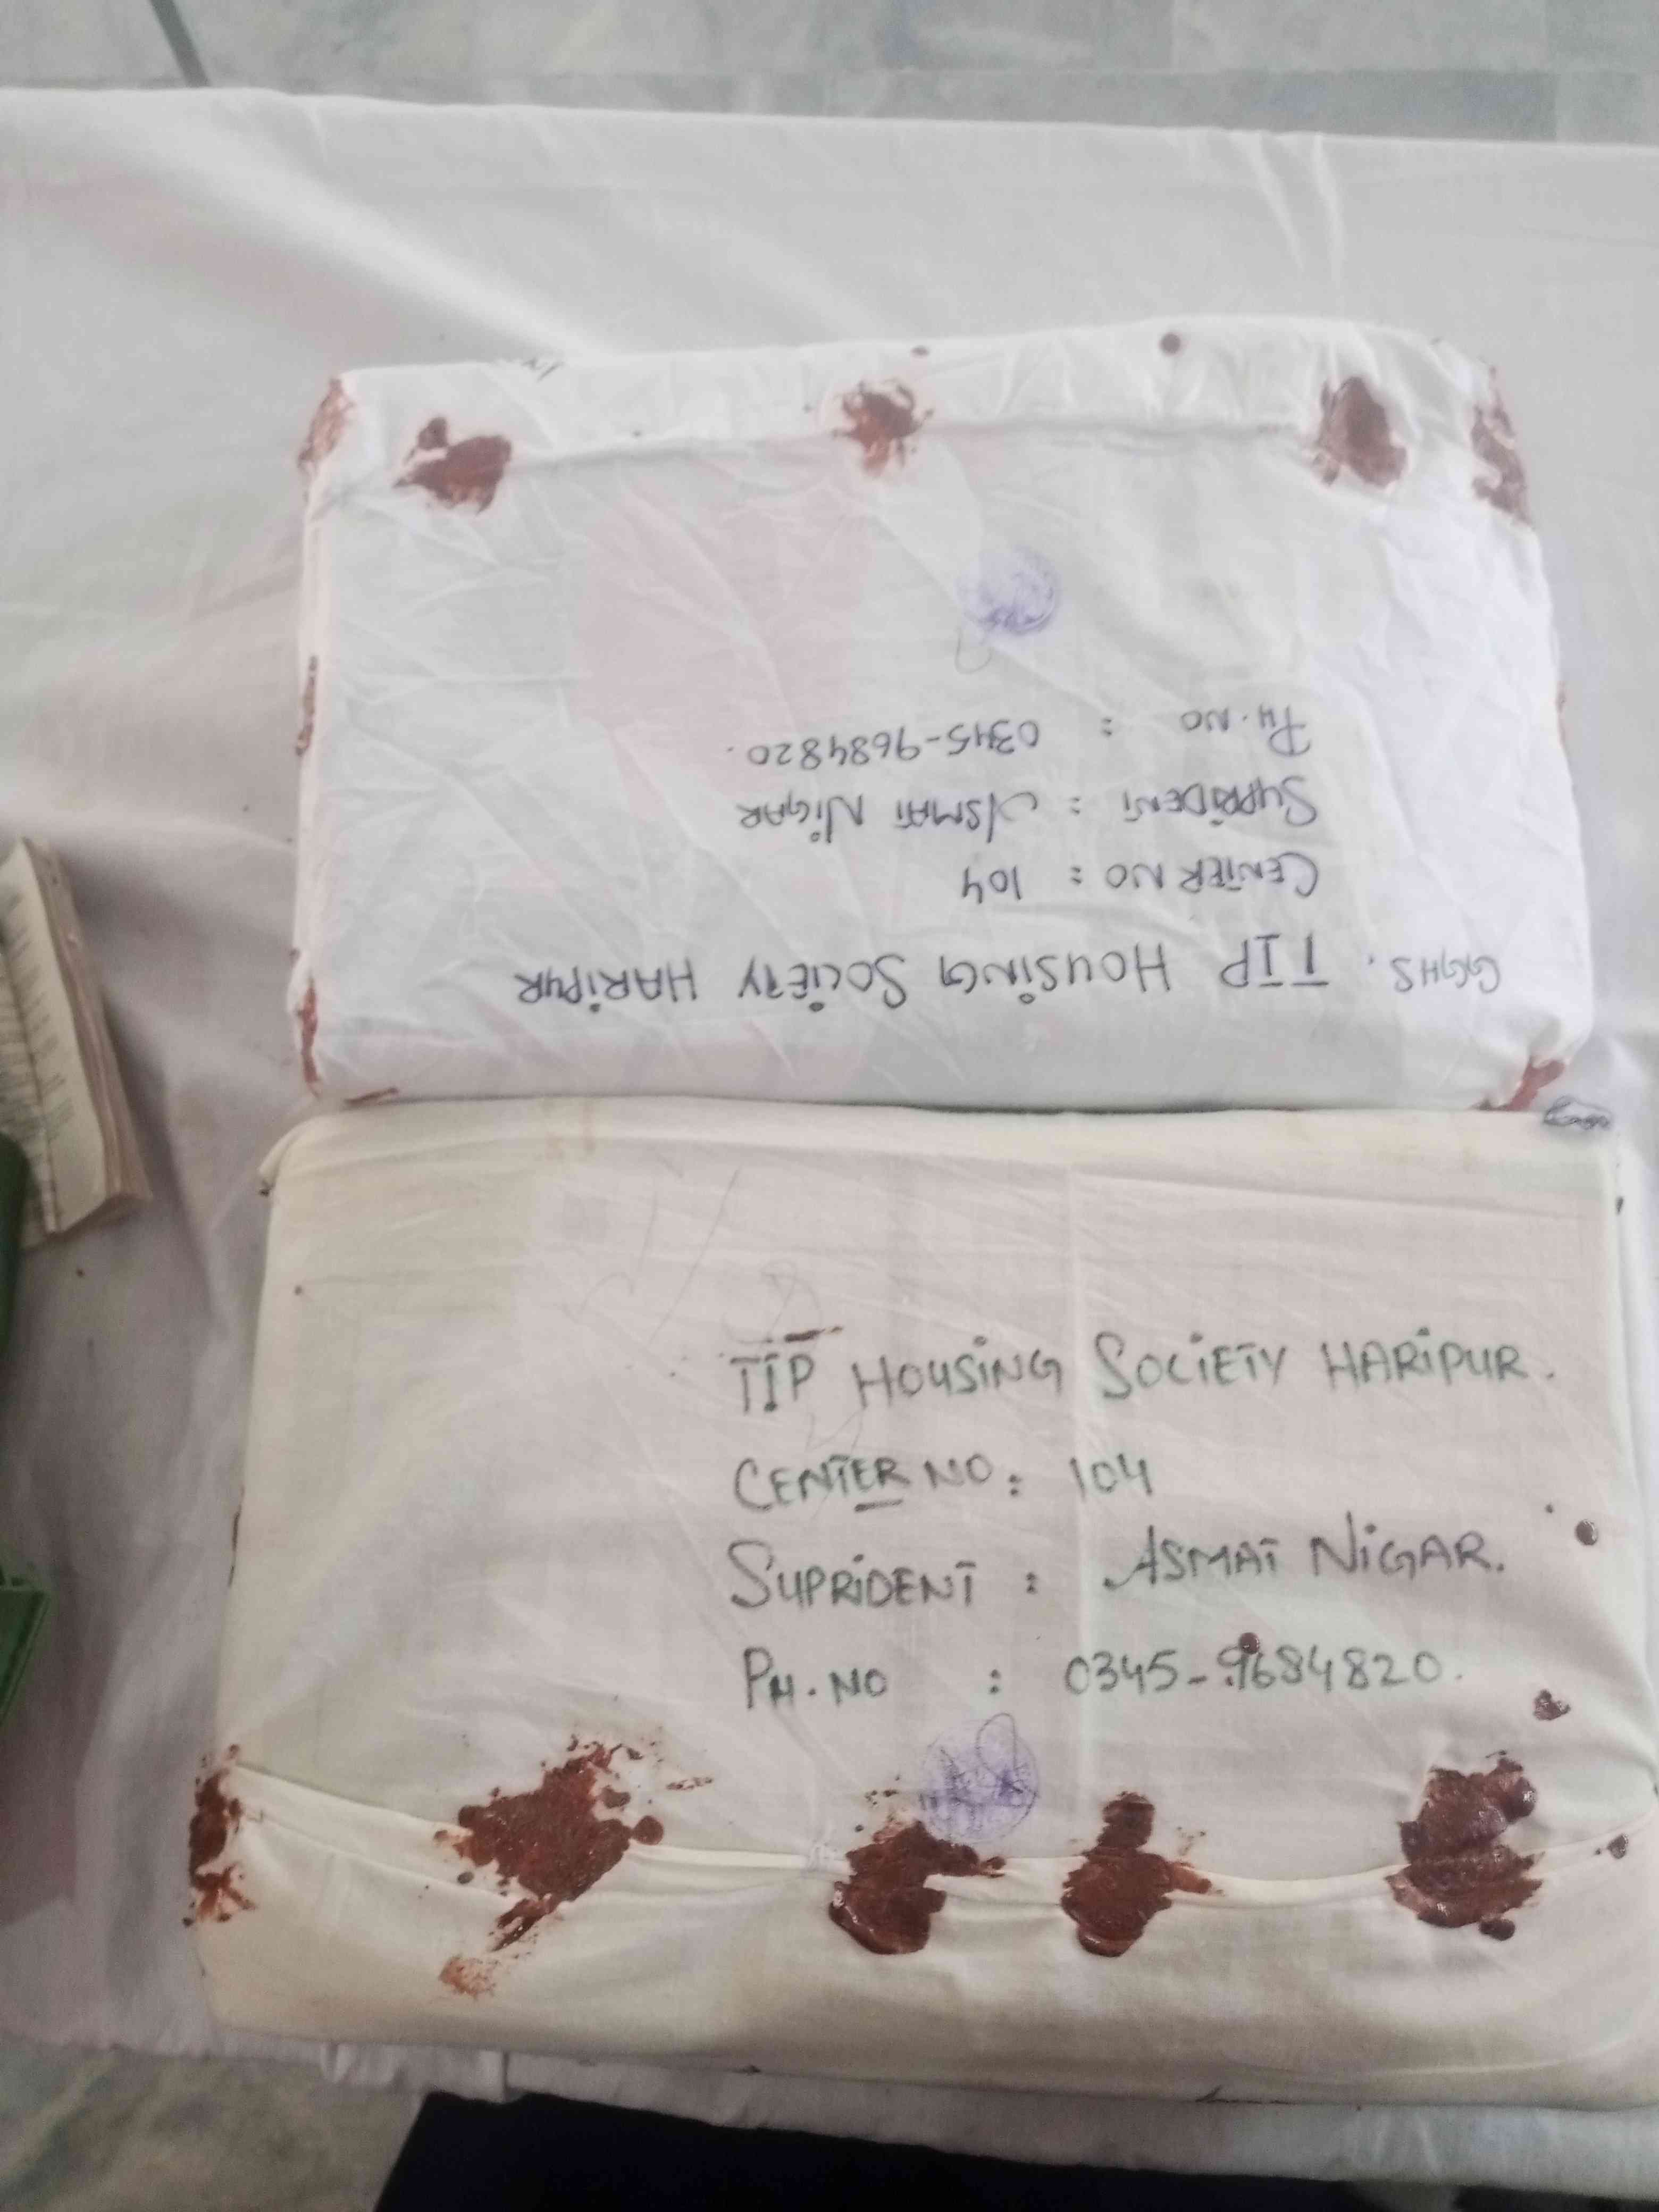 GGHS. TIP HOUSING SOCIETY HARIPUR
CENTER NO : 104
SUPRIDENT : ASMAT NIGAR
PH. NO : 0345-9684820.
TIP HOUSING SOCIETY HARIPUR.
CENTER NO : 104
SUPRIDENT : ASMAT NIGAR.
PH. NO : 0345-9684820.